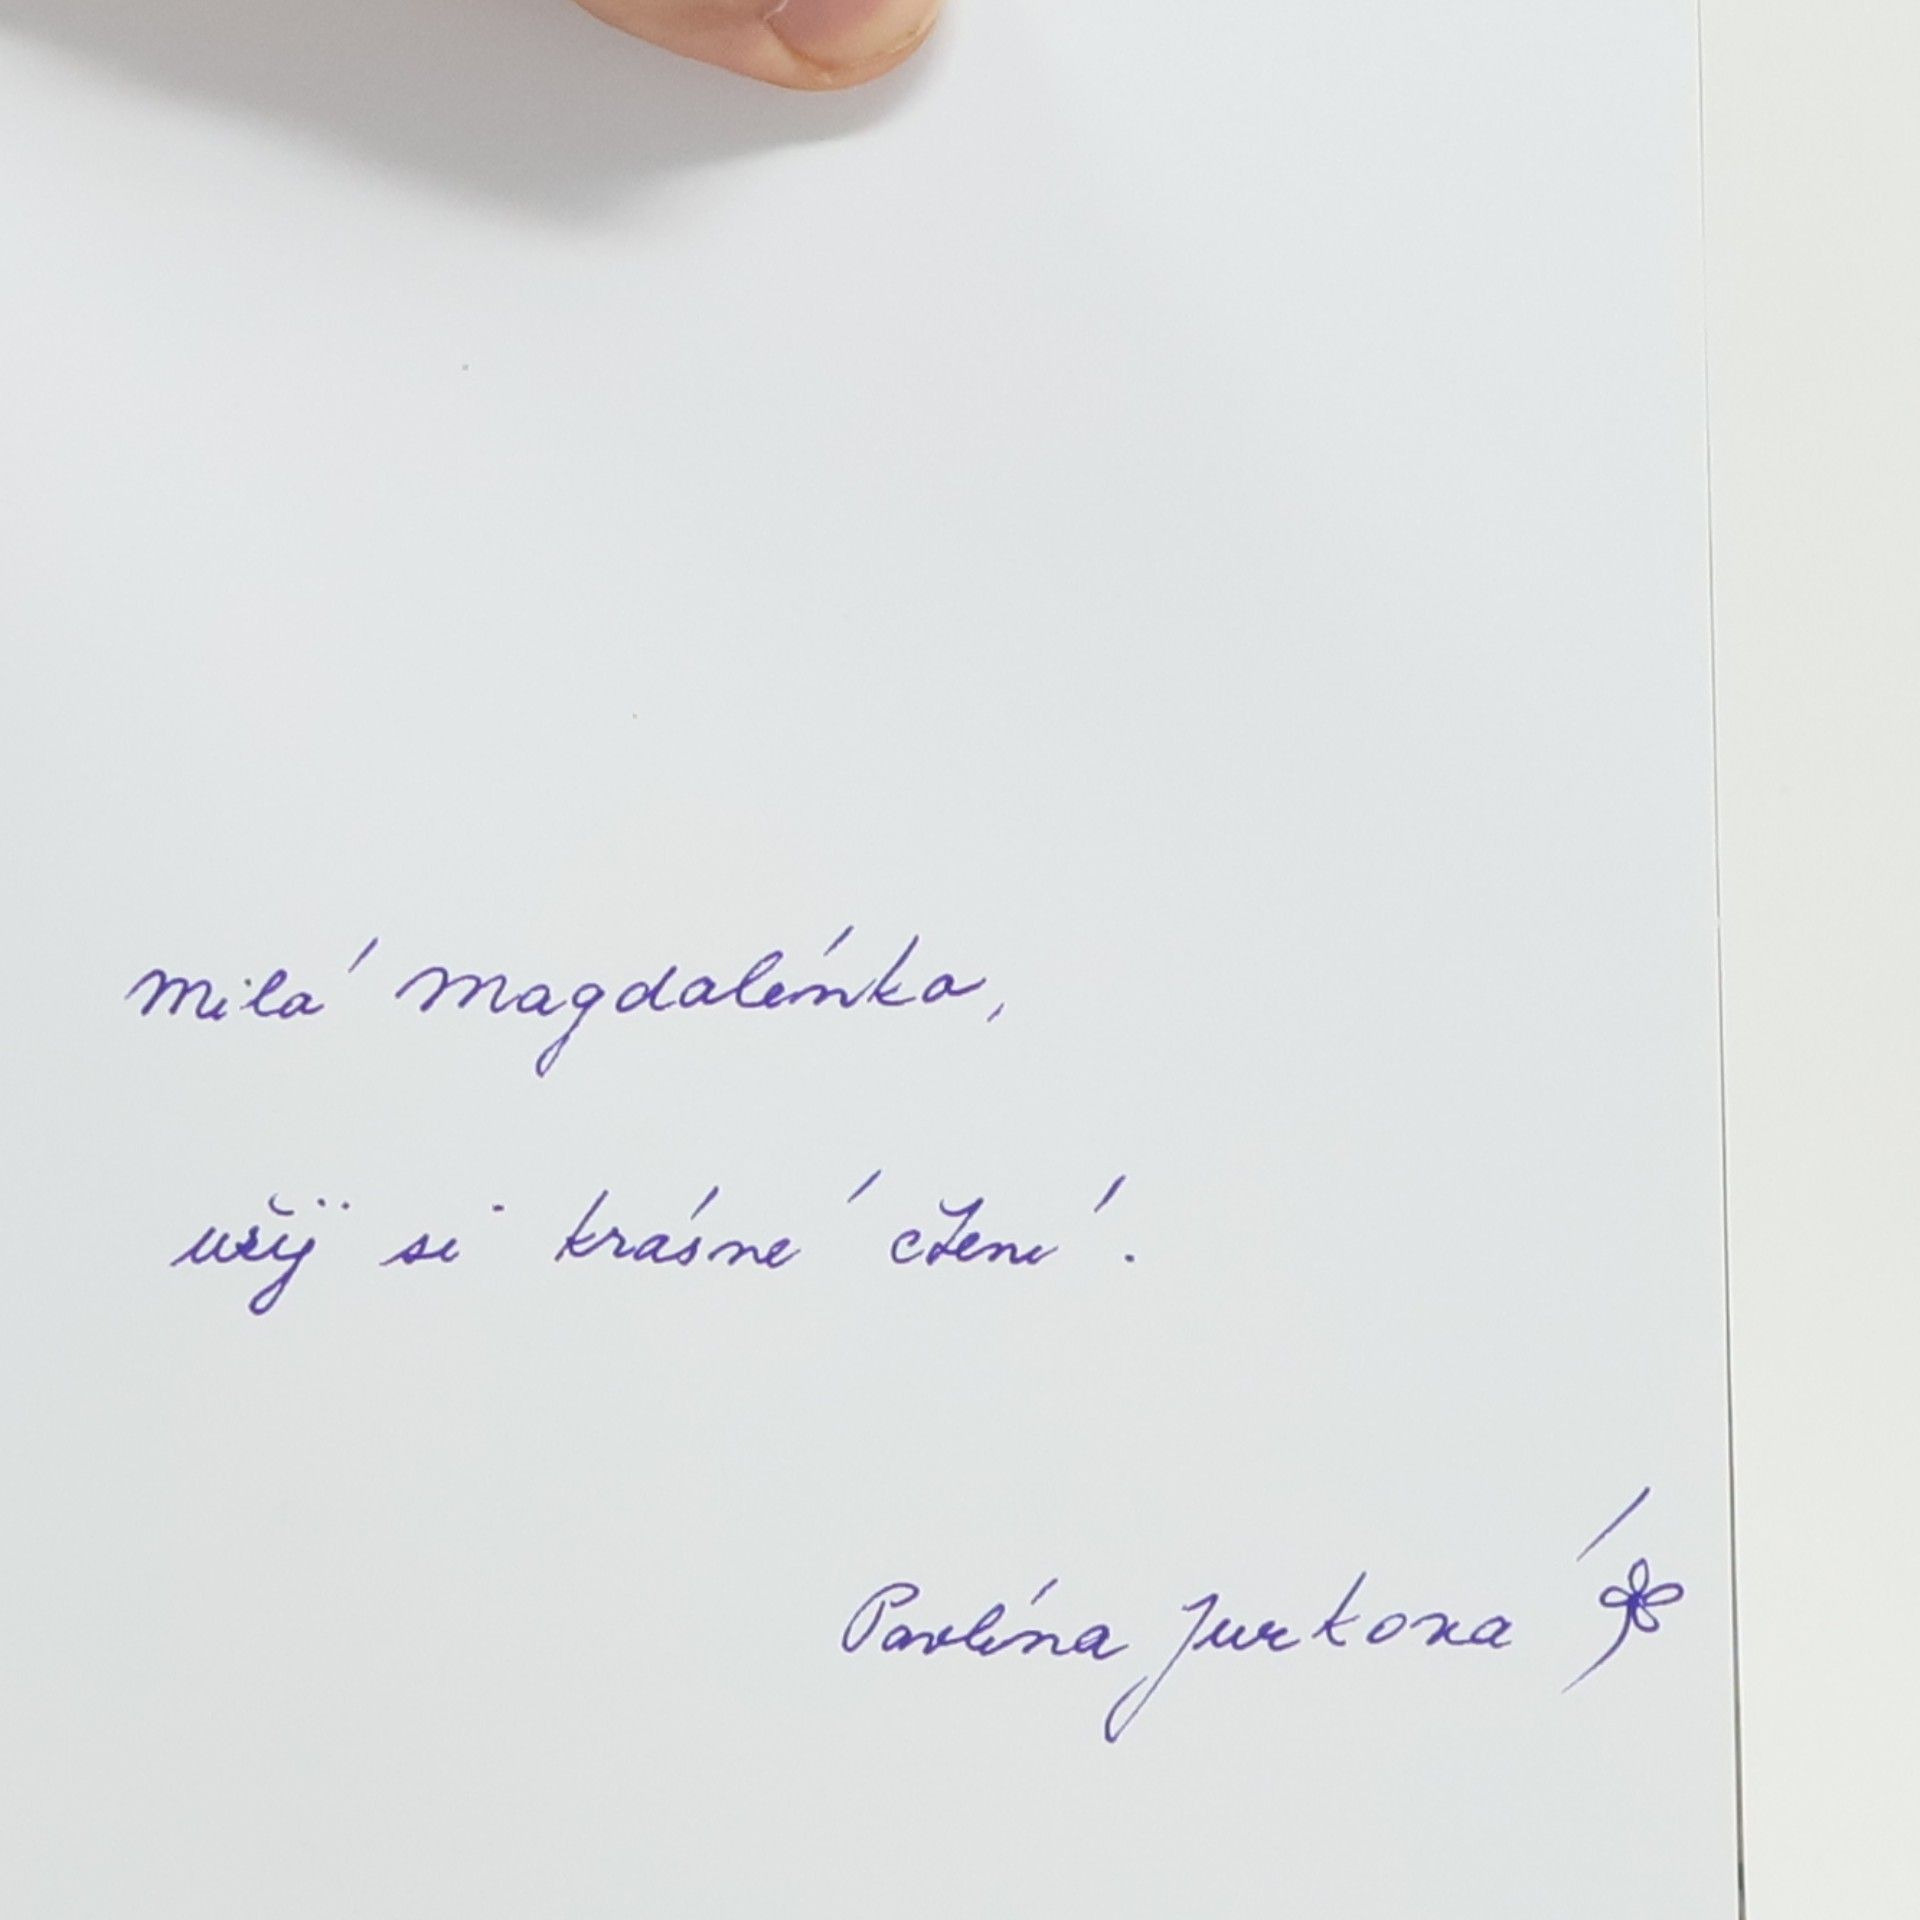 Milá Magdalénko,
užij si krásné čtení.
Pavlína Jurková